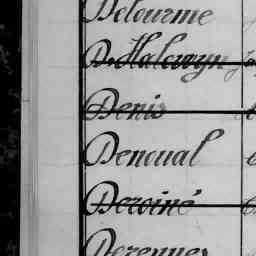 Delourme
D'Halewyn
Denis
Denoual
Deroiné
Derennes